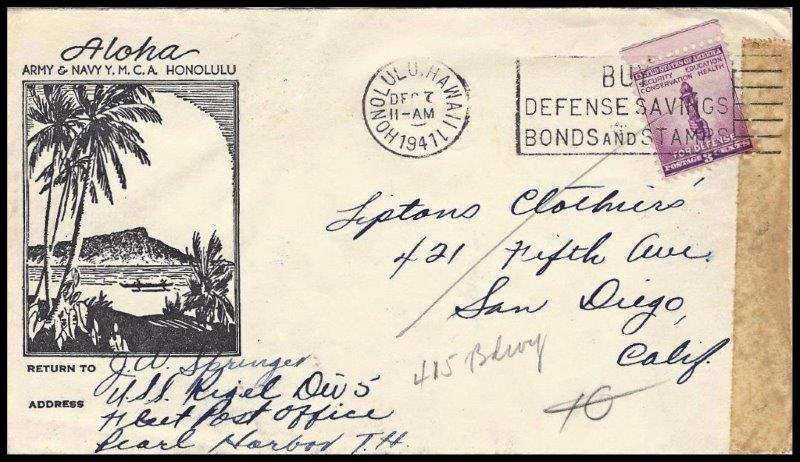 Aloha
ARMY & NAVY Y.M.C.A. HONOLULU
HONOLULU, HAWAII
DEC 7
11-AM
1941
BUY
DEFENSE SAVINGS
BONDS AND STAMPS
UNITED STATES OF AMERICA
SECURITY EDUCATION
CONSERVATION HEALTH
FOR DEFENSE
POSTAGE 3 CENTS
Liptons Clothiers
421 Fifth Ave.
San Diego,
Calif.
415 Bdwy
RETURN TO J.W. Springer
U.S.S. Rigel Div 5
ADDRESS Fleet Post Office
Pearl Harbor T.H.